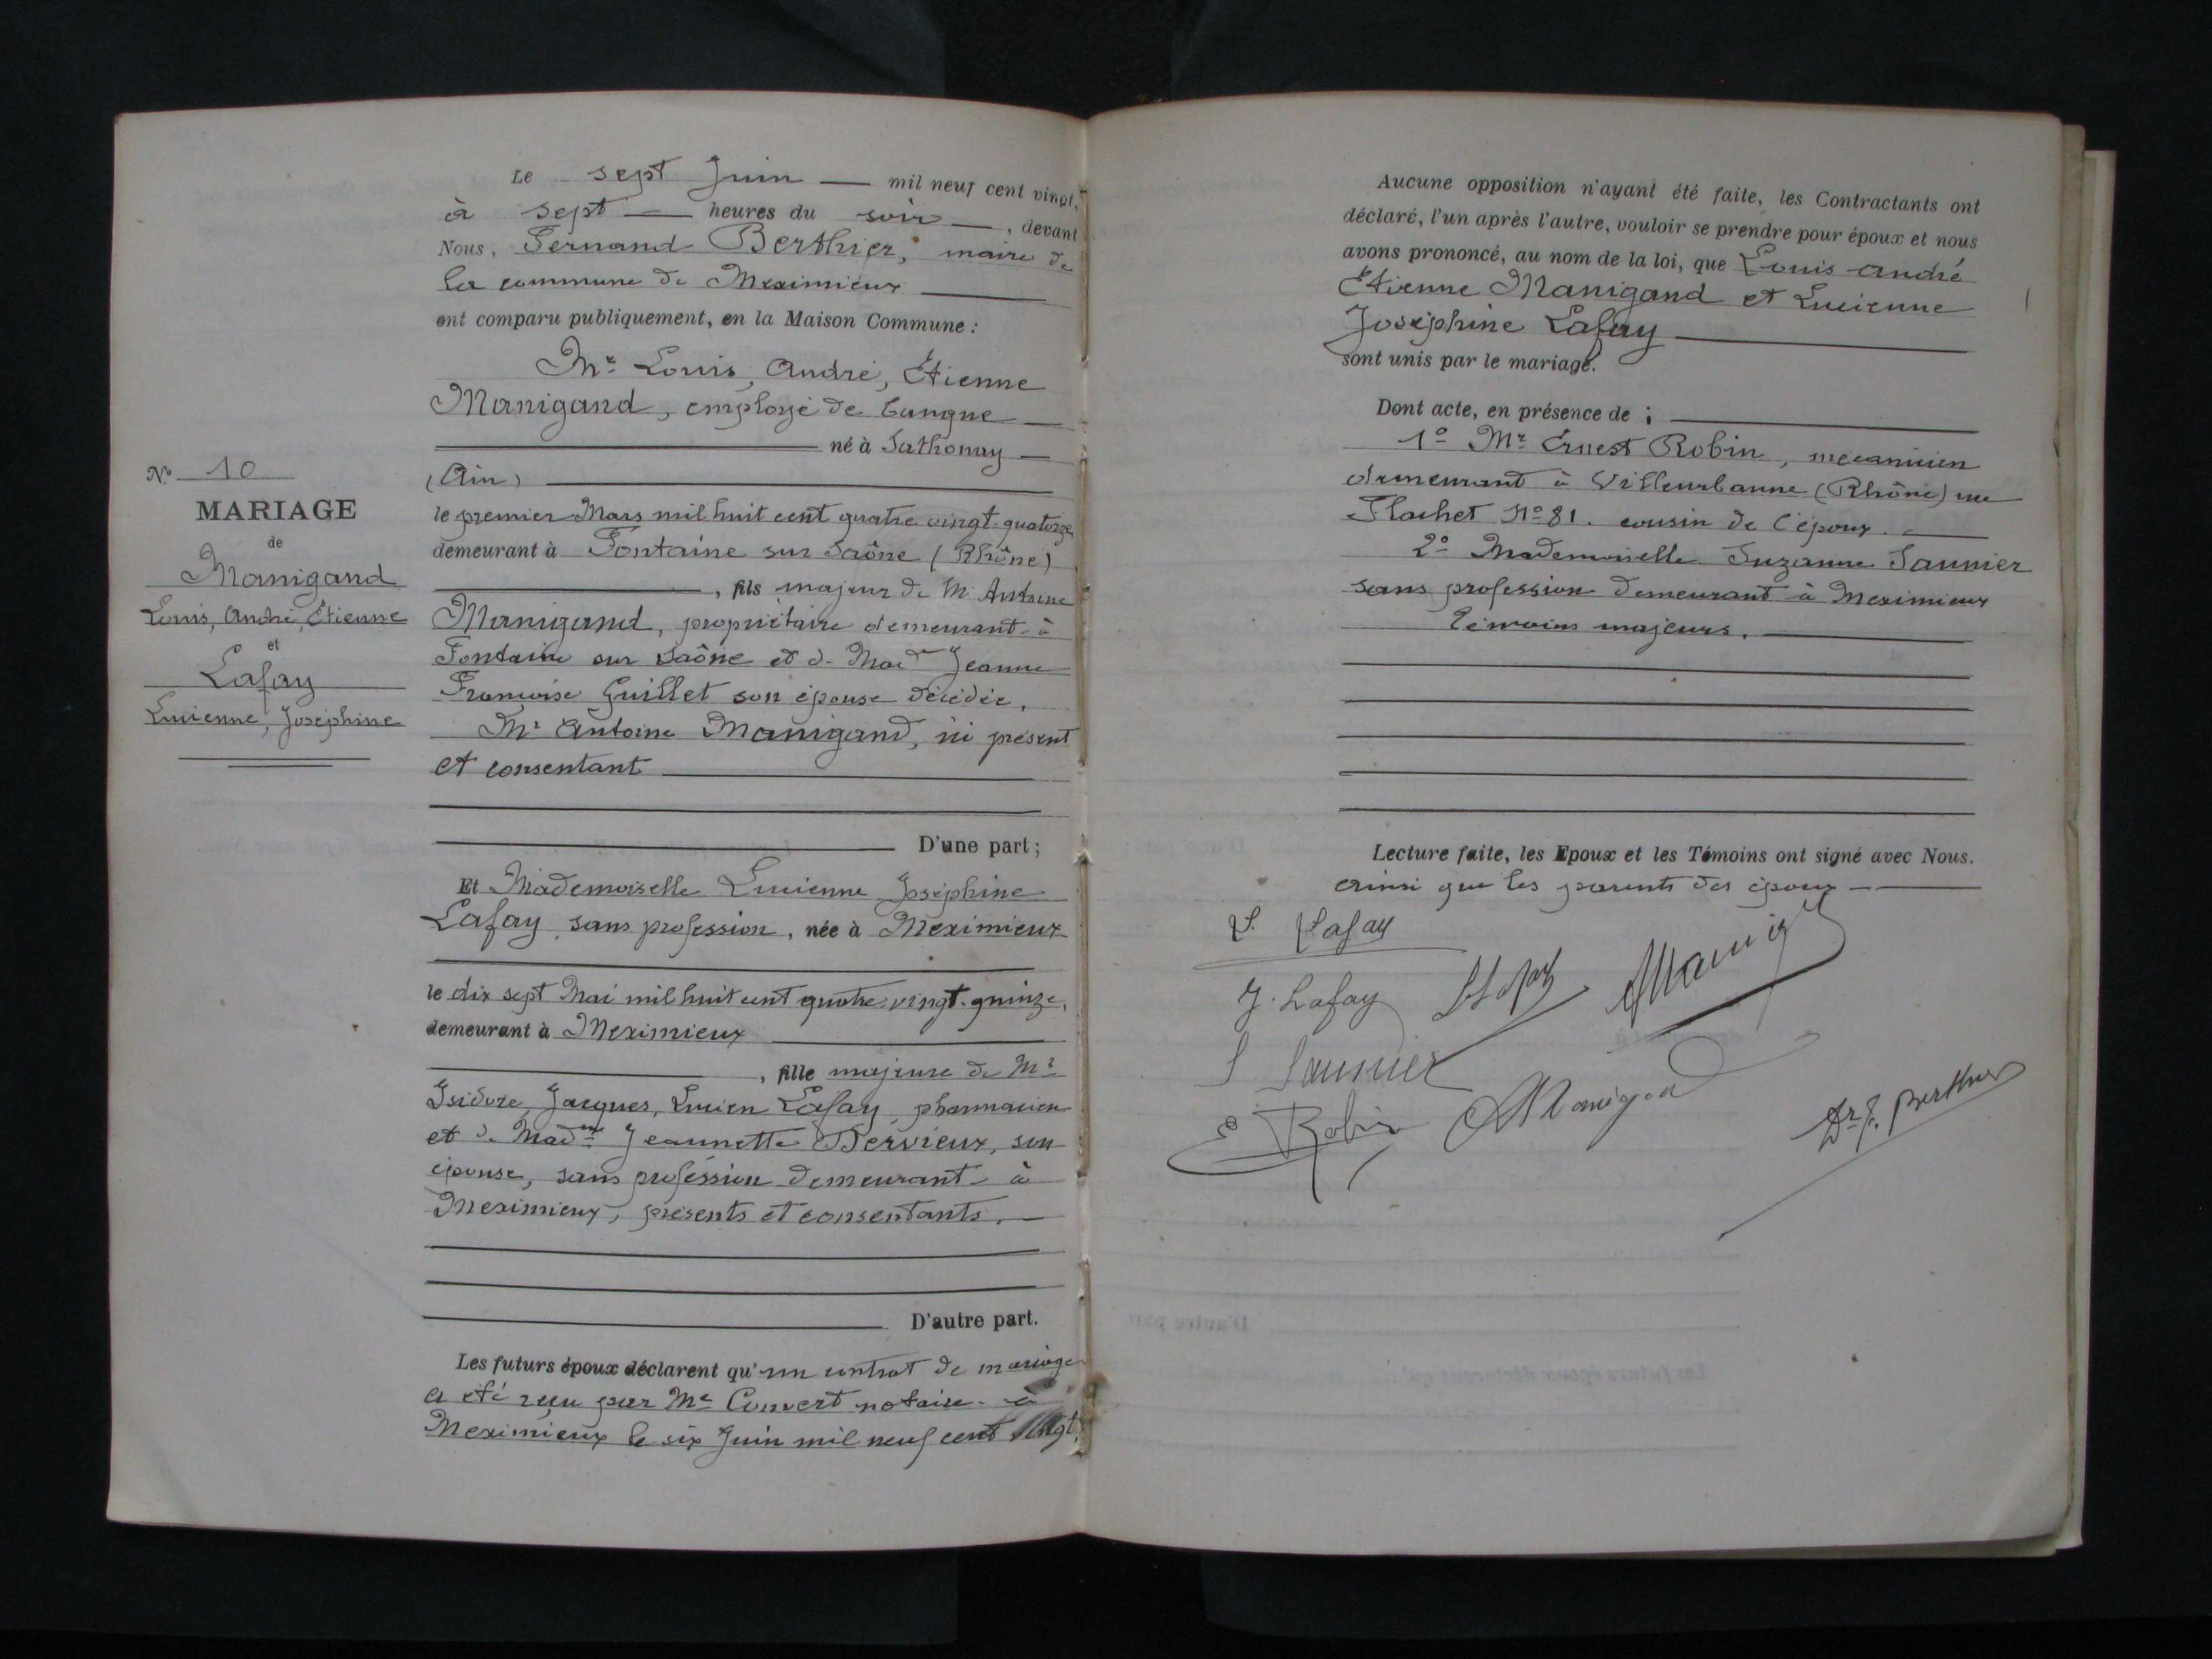 N° 10
MARIAGE
de
Manigand
Louis, André, Etienne
et
Lafay
Lucienne, Joséphine
Le sept Juin mil neuf cent vingt,
à sept heures du soir, devant
Nous, Fernand Berthier, maire de
la commune de Meximieux
ont comparu publiquement, en la Maison Commune :
Mr Louis, André, Étienne
Manigand, employé de banque
né à Sathonay
(Ain)
le premier Mars mil huit cent quatre vingt-quatorze
demeurant à Fontaine sur Saône (Rhône)
, fils majeur de M. Antoine
Manigand, propriétaire demeurant à
Fontaine sur Saône et d. Made Jeanne
Françoise Guillet son épouse décédée,
Mr Antoine Manigand, ici présent
et consentant
D'une part ;
Et Mademoiselle Lucienne Joséphine
Lafay, sans profession, née à Meximieux
le dix sept Mai mil huit cent quatre-vingt-quinze,
demeurant à Meximieux
, fille majeure de Mr
Isidore, Jacques, Lucien Lafay, pharmacien
et d. Madme Jeannette Bervieux, son
épouse, sans profession demeurant à
Meximieux, présents et consentants.
D'autre part.
Les futurs époux déclarent qu'un contrat de mariage
a été reçu par Me Convert notaire à
Meximieux le six Juin mil neuf cent vingt.
Aucune opposition n'ayant été faite, les Contractants ont
déclaré, l'un après l'autre, vouloir se prendre pour époux et nous
avons prononcé, au nom de la loi, que Louis André
Etienne Manigand et Lucienne
Joséphine Lafay
sont unis par le mariage.
Dont acte, en présence de :
1° Mr Ernest Robin, mécanicien
demeurant à Villeurbanne (Rhône) rue
Flachet N° 81. cousin de l'époux.
2° Mademoiselle Suzanne Saunier
sans profession demeurant à Meximieux
Témoins majeurs.
Lecture faite, les Epoux et les Témoins ont signé avec Nous.
ainsi que les parents des époux
L. Lafay
J. Lafay
S Saunier
E Robin
AManigand
Dr F. Berthier